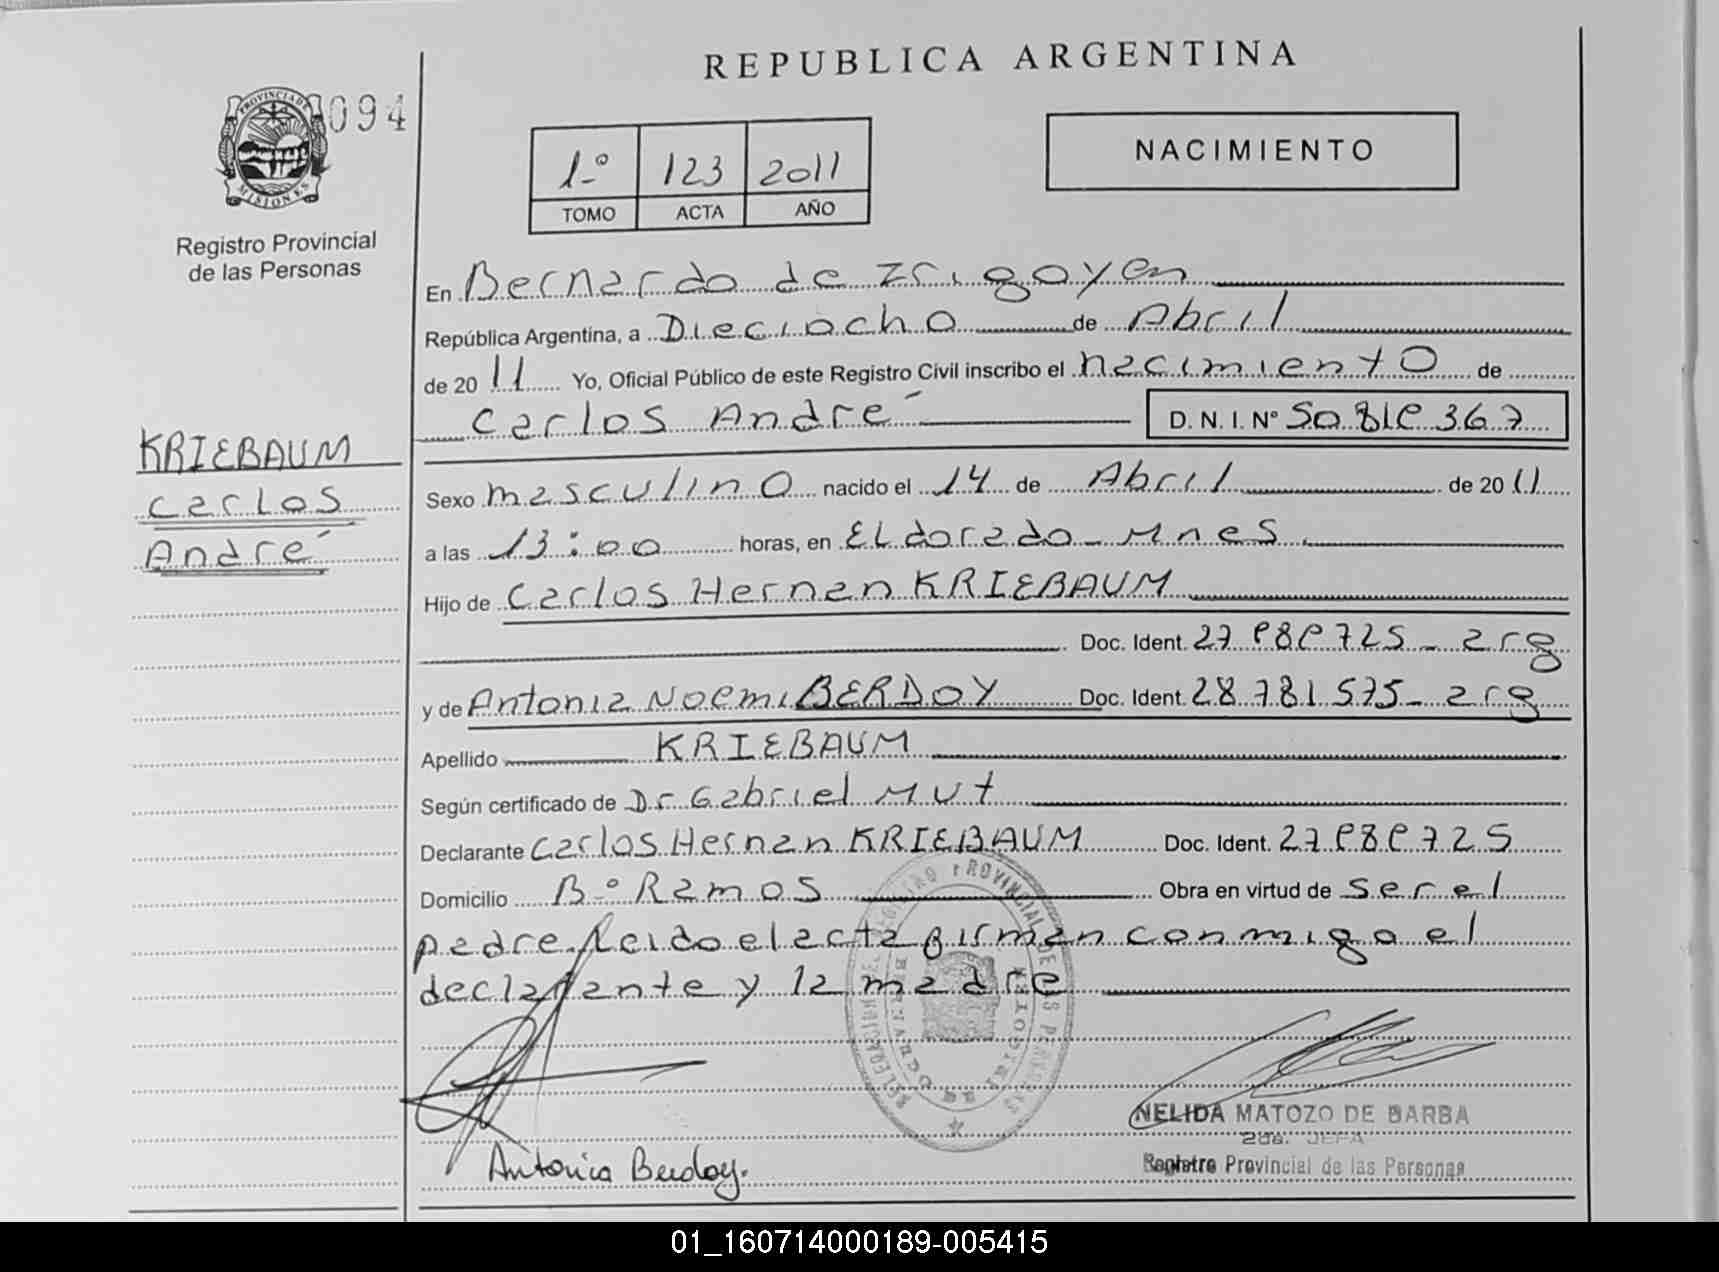 REPUBLICA ARGENTINA
094
PROVINCIA DE MISIONES
Registro Provincial
de las Personas
1º 123 2011
TOMO ACTA AÑO
NACIMIENTO
En Bernardo de Irigoyen
República Argentina, a Dieciocho de Abril
de 2011 Yo, Oficial Público de este Registro Civil inscribo el nacimiento de
Carlos André D. N. I. Nº 50.819.367
KRIEBAUM
Carlos
André
Sexo masculino nacido el 14 de Abril de 2011
a las 13:00 horas, en ELdorado - Mnes.
Hijo de Carlos Hernan KRIEBAUM
Doc. Ident. 27.989.725 - arg
y de Antonia Noemi BERDOY Doc. Ident. 28.781.575 - arg
Apellido KRIEBAUM
Según certificado de Dr. Gabriel Mut
Declarante Carlos Hernan KRIEBAUM Doc. Ident. 27.989.725
Domicilio Bº Ramos Obra en virtud de ser el
padre. Leido el acta firman conmigo el
declarante y la madre
Antonia Berdoy.
NELIDA MATOZO DE BARBA
2da. JEFA
Registro Provincial de las Personas
01_160714000189-005415